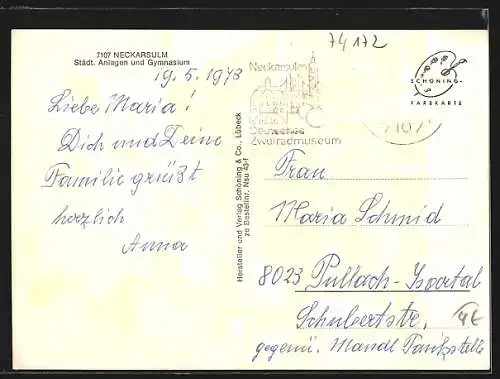 74172
7107 NECKARSULM
Städt. Anlagen und Gymnasium
19.5.1973
Liebe Maria!
Dich und Deine
Familie grüßt
herzlich
Anna
Hersteller und Verlag Schöning & Co., Lübeck
Bestellnr. Nsu 43-f
Neckarsulm
Deutsches
Zweiradmuseum
7107
SCHÖNING-
FARBKARTE
Frau
Maria Schmid
8023 Pullach-Isartal
Schubertstr.
gegenü. Mandl Tankstelle